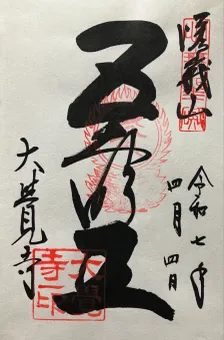 嵯峨山
令和七年
四月四日
五大明王
大覺寺
大覺寺印